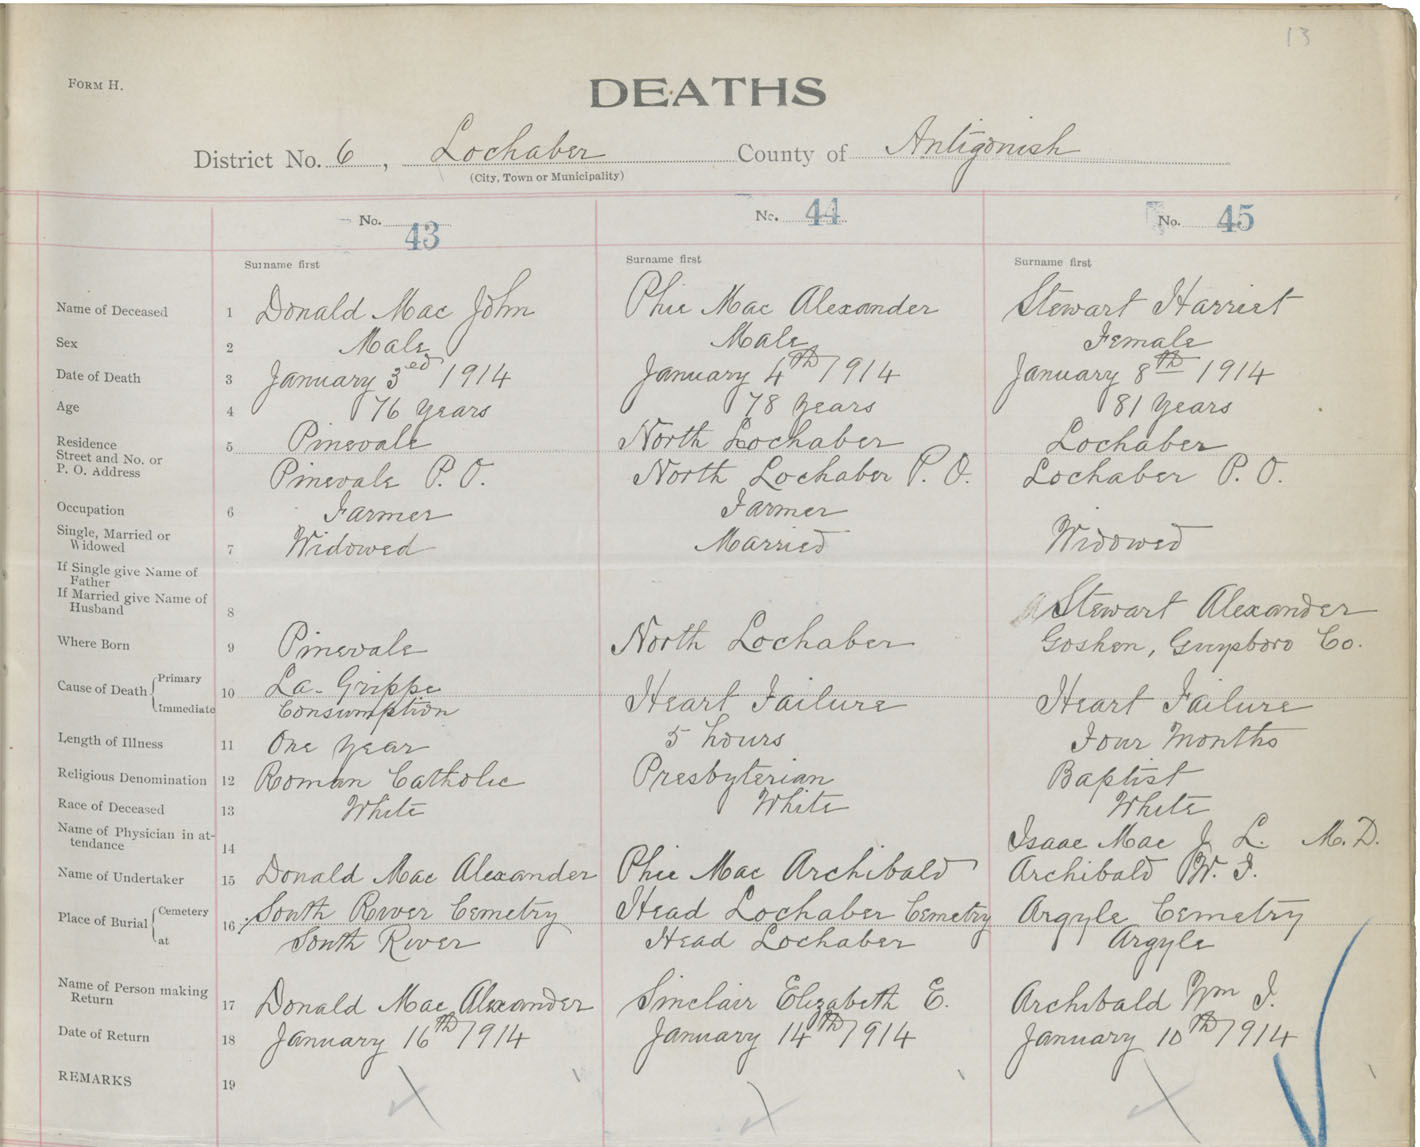 13
FORM H.
DEATHS
District No. 6, Lochaber County of Antigonish
(City, Town or Municipality)
No. 43 No. 44 No. 45
Surname first Surname first Surname first
Name of Deceased 1 Donald Mac John Phie Mac Alexander Stewart Harriet
Sex 2 Male Male Female
Date of Death 3 January 3ed 1914 January 4th 1914 January 8th 1914
Age 4 76 Years 78 Years 81 Years
Residence 5 Pinevale North Lochaber Lochaber
Street and No. or
P. O. Address Pinevale P. O. North Lochaber P. O. Lochaber P. O.
Occupation 6 Farmer Farmer
Single, Married or
Widowed 7 Widowed Married Widowed
If Single give Name of
Father
If Married give Name of
Husband 8 Stewart Alexander
Where Born 9 Pinevale North Lochaber Goshen, Guysboro Co.
Cause of Death Primary 10 La-Grippe Heart Failure Heart Failure
Immediate Consumption
Length of Illness 11 One year 5 hours Four Months
Religious Denomination 12 Roman Catholic Presbyterian Baptist
Race of Deceased 13 White White White
Name of Physician in at-
tendance 14 Isaac Mac J. L. M.D.
Name of Undertaker 15 Donald Mac Alexander Phie Mac Archibald Archibald W. I.
Place of Burial Cemetery 16 South River Cemetry Head Lochaber Cemetry Argyle Cemetry
at South River Head Lochaber Argyle
Name of Person making
Return 17 Donald Mac Alexander Sinclair Elizabeth E. Archibald Wm I.
Date of Return 18 January 16th 1914 January 14th 1914 January 10th 1914
REMARKS 19